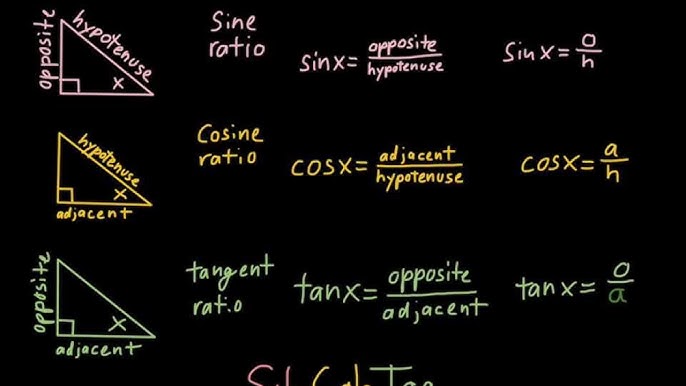 opposite
hypotenuse
x
Sine
ratio
sinx = opposite/hypotenuse
sinx = o/h
hypotenuse
x
adjacent
Cosine
ratio
cosx = adjacent/hypotenuse
cosx = a/h
opposite
x
adjacent
tangent
ratio
tanx = opposite/adjacent
tanx = o/a